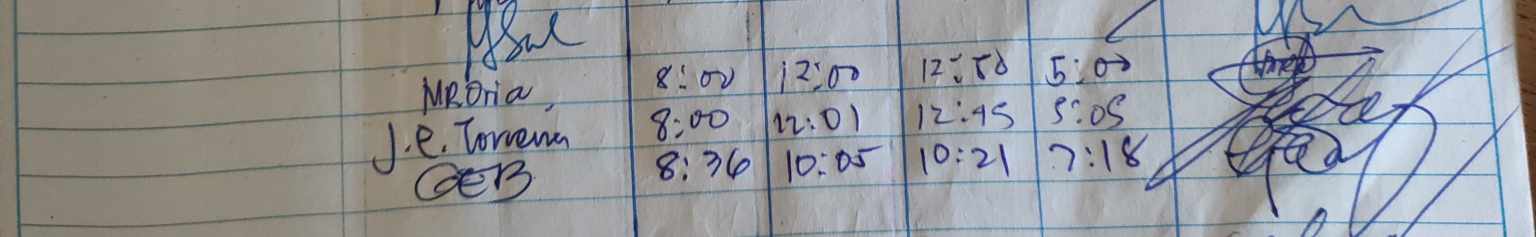 MR Oria 8:00 12:00 12:50 5:00
J.E. 8:00 12:01 12:45 5:05
GEB 8:36 10:05 10:21 7:18